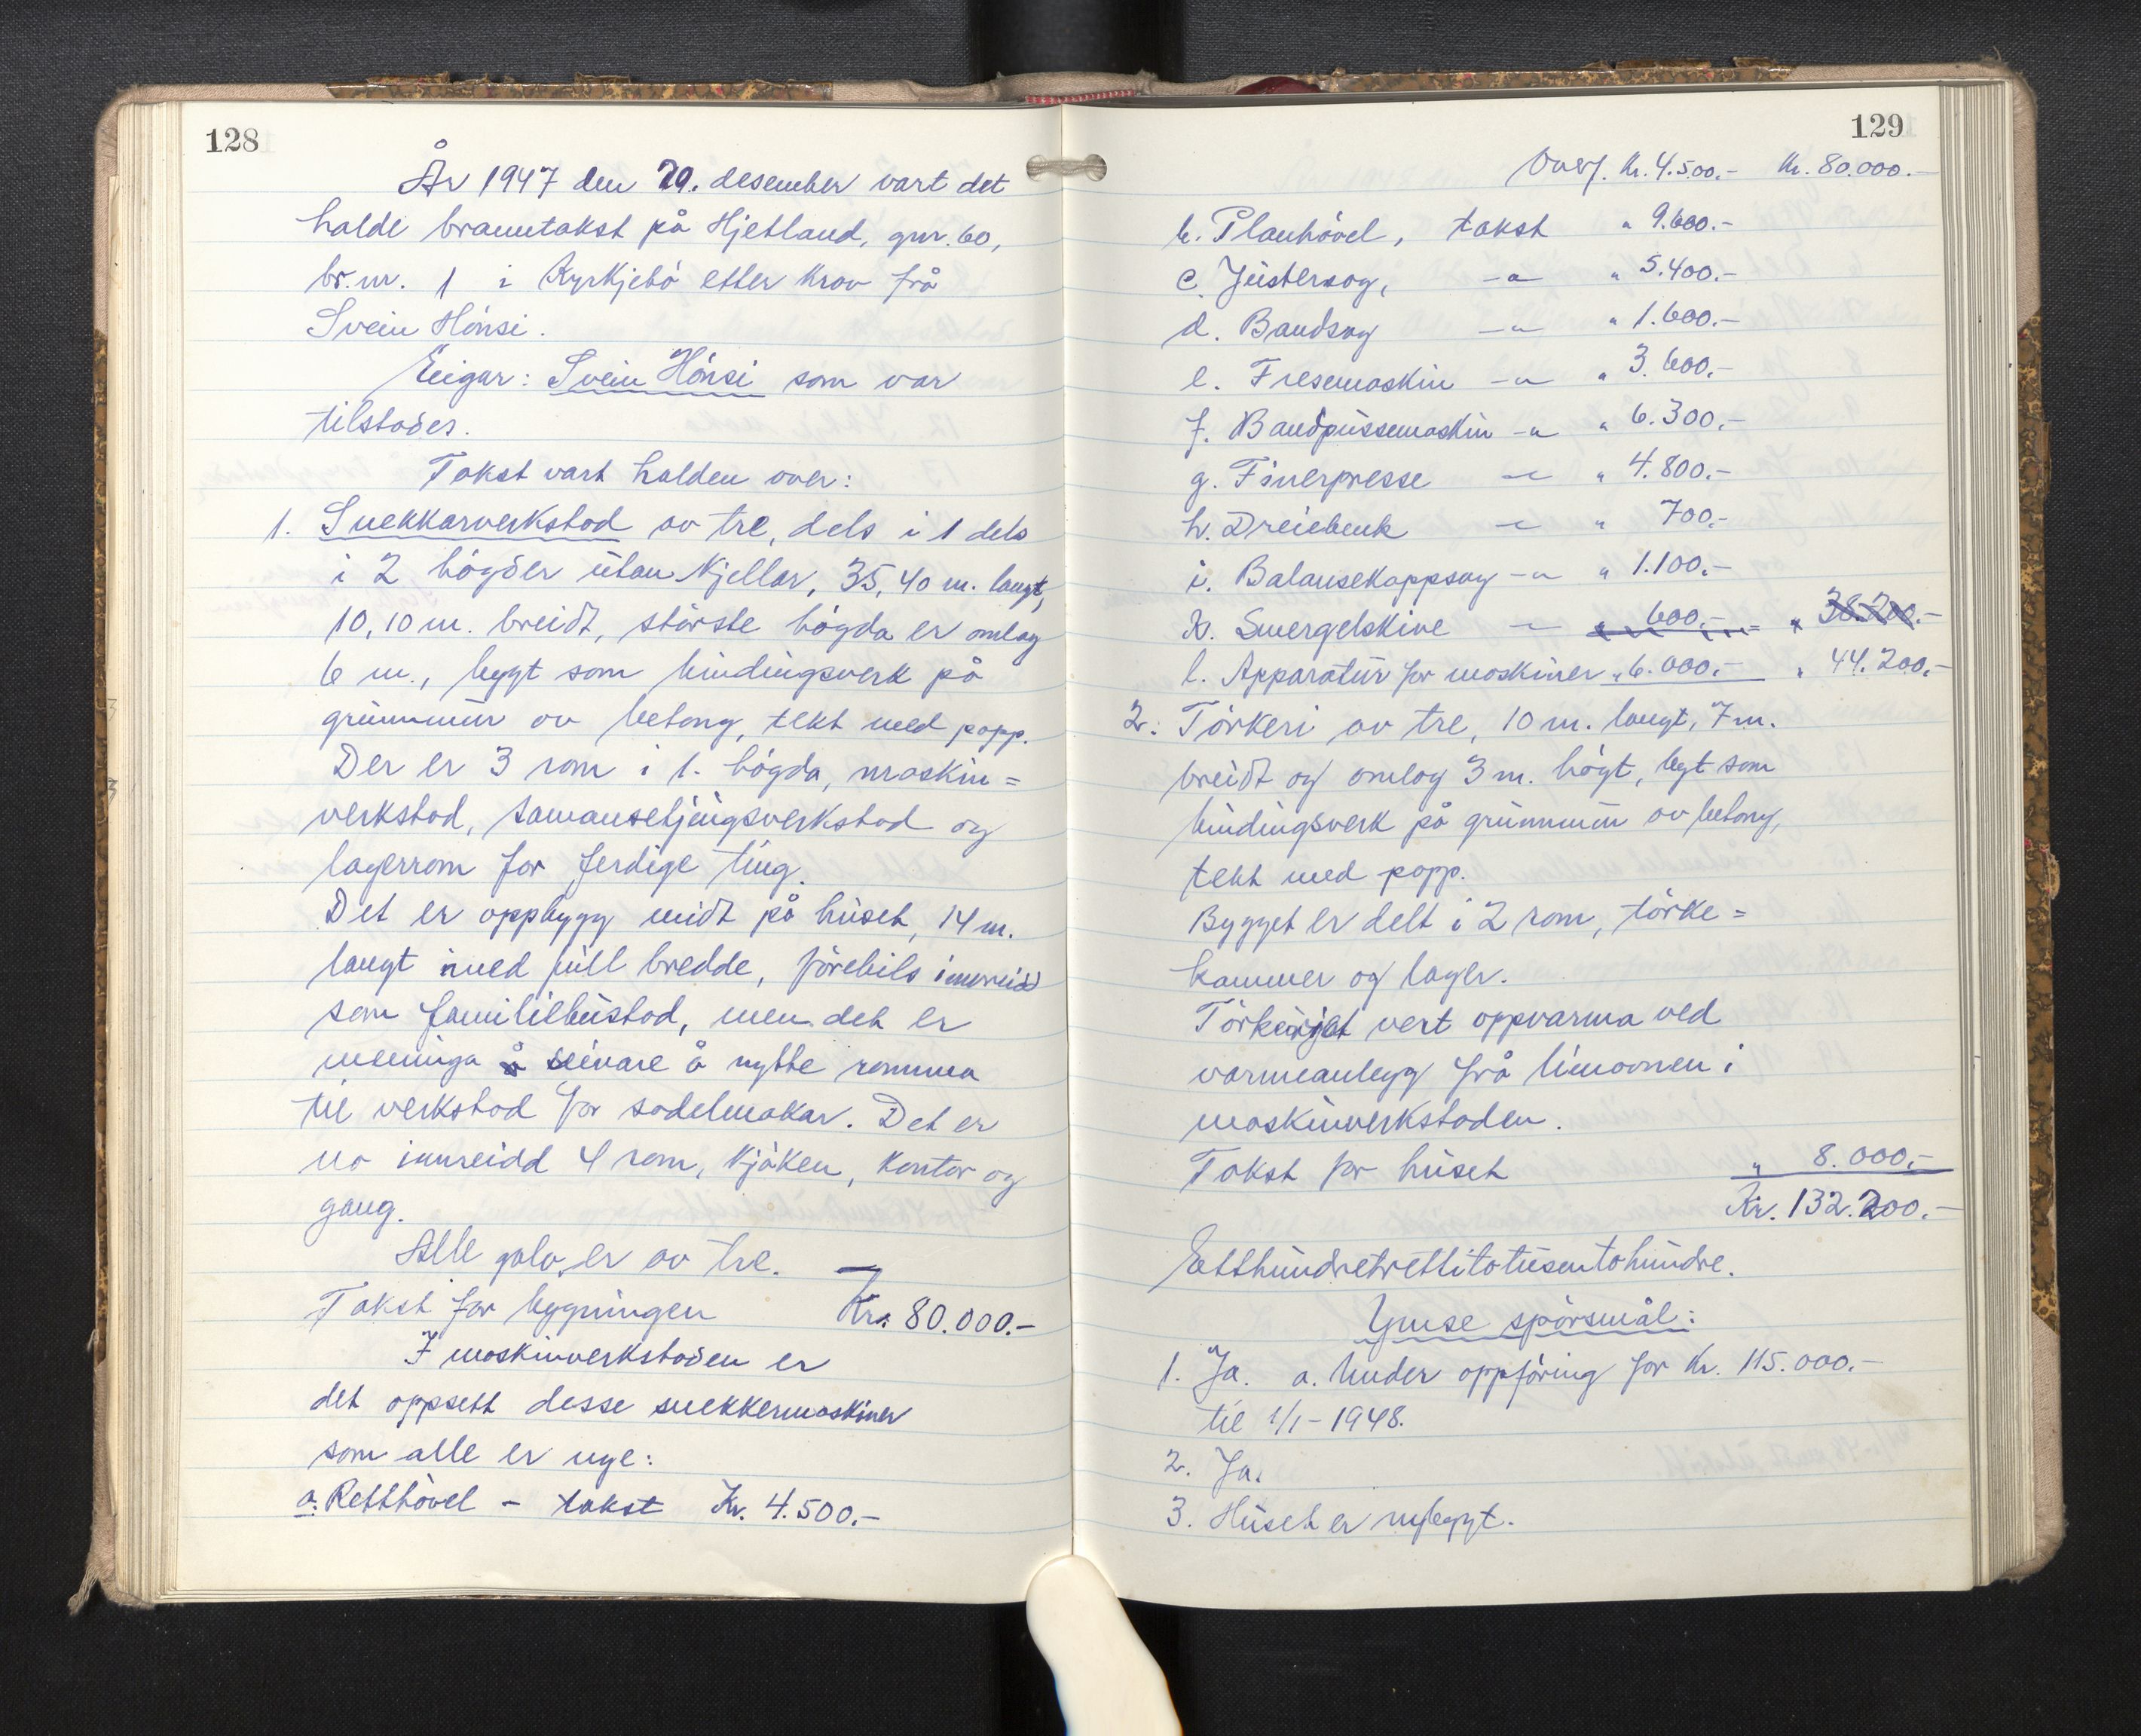 128
År 1947 den 29. desember vart det
halde branntakst på Hjetland, gnr. 60,
br.nr. 1 i Kyrkjebö etter krav frå
Svein Hönsi.
Eigar: Svein Hönsi som var
tilstades.
Takst vart halden over:
1. Snekkarverkstad av tre, dels i 1 dels
i 2 högder utan kjellar, 35,40 m. langt,
10,10 m. breidt, störste högda er omlag
6 m., bygt som bindingsverk på
grunnmur av betong, tekt med papp.
Der er 3 rom i 1. högda, maskin=
verkstad, samansetjingsverkstad og
lagerrom for ferdige ting.
Det er oppbygg midt på huset, 14 m.
langt med full bredde, förebils innreidd
som familiebustad, men det er
meininga seinare å nytte romma
til verkstad for sadelmakar. Det er
no innreidd 4 rom, kjöken, kontor og
gang.
Alle golv er av tre.
Takst for bygningen Kr. 80.000.-
I maskinverkstaden er
det oppsett desse snekkermaskiner
som alle er nye:
a. Retthövel - takst Kr. 4.500.-
129
Overf. Kr. 4.500.- Kr. 80.000.-
b. Planhövel, takst " 9.600.-
c. Justersag, -"- " 5.400.-
d. Bandsag -"- " 1.600.-
e. Fresemaskin -"- " 3.600.-
f. Bandpussemaskin -"- " 6.300.-
g. Finerpresse -"- " 4.800.-
h. Dreiebenk -"- " 700.-
i. Balansekappsag -"- " 1.100.-
k. Smergelskive -"- " 600.- " 38.200.-
l. Apparatur for maskiner " 6.000.- " 44.200.-
2. Törkeri av tre, 10 m. langt, 7 m.
breidt og omlag 3 m. högt, bygt som
bindingsverk på grunnmur av betong,
tekt med papp.
Bygget er delt i 2 rom, törke=
kammer og lager.
Törkeriet vert oppvarma ved
varmeanlegg frå limovnen i
maskinverkstaden.
Takst for huset " 8.000.-
Kr. 132.200.-
Etthundretrettitotusentohundre.
Ymse spörsmål:
1. Ja. a. Under oppföring for Kr. 115.000.-
til 1/1-1948.
2. Ja.
3. Huset er nybygt.